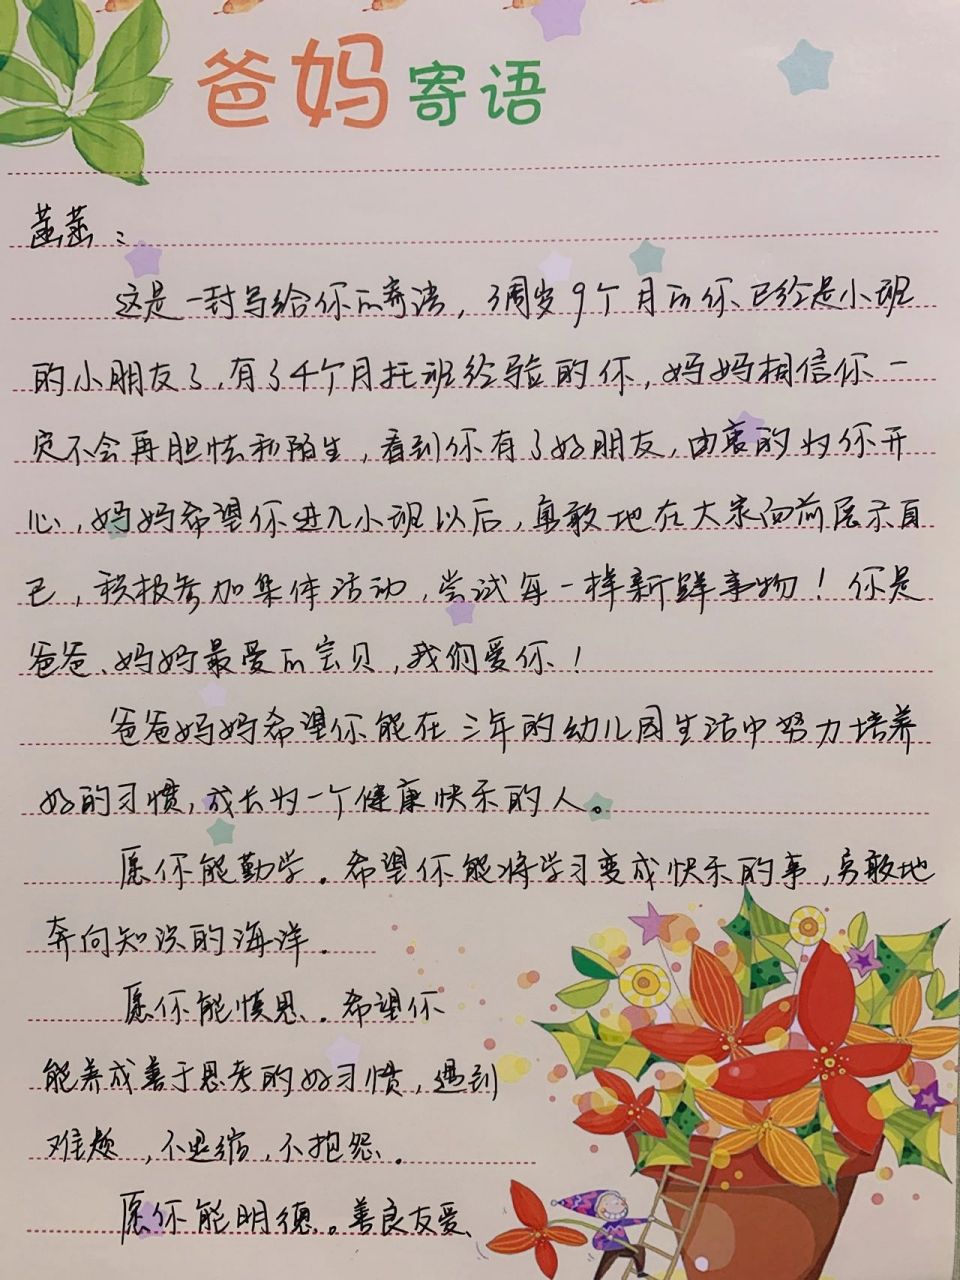 爸妈寄语
菡菡：
这是一封写给你的寄语，3周岁9个月的你已经是小班
的小朋友了，有了4个月托班经验的你，妈妈相信你一
定不会再胆怯和陌生，看到你有了好朋友，由衷的为你开
心，妈妈希望你进入小班以后，勇敢地在大家面前展示自
己，积极参加集体活动，尝试每一样新鲜事物！你是
爸爸、妈妈最爱的宝贝，我们爱你！
爸爸妈妈希望你能在三年的幼儿园生活中努力培养
好的习惯，成长为一个健康快乐的人。
愿你能勤学。希望你能将学习变成快乐的事，勇敢地
奔向知识的海洋。
愿你能慎思。希望你
能养成善于思考的好习惯，遇到
难题，不退缩，不抱怨。
愿你能明德。善良友爱、